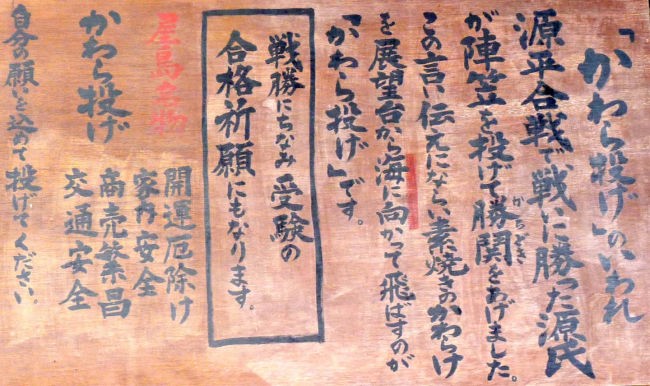 「かわら投げ」のいわれ
源平合戦で、戦いに勝った源氏
が陣笠を投げて勝鬨をあげました。
かちどき
この言い伝えにならい素焼きのかわらけ
を展望台から海に向かって飛ばすのが
「かわら投げ」です。
戦勝にちなみ受験の
合格祈願にもなります。
屋島名物
かわら投げ
開運厄除け
家内安全
商売繁昌
交通安全
自分の願いを込めて投げてください。